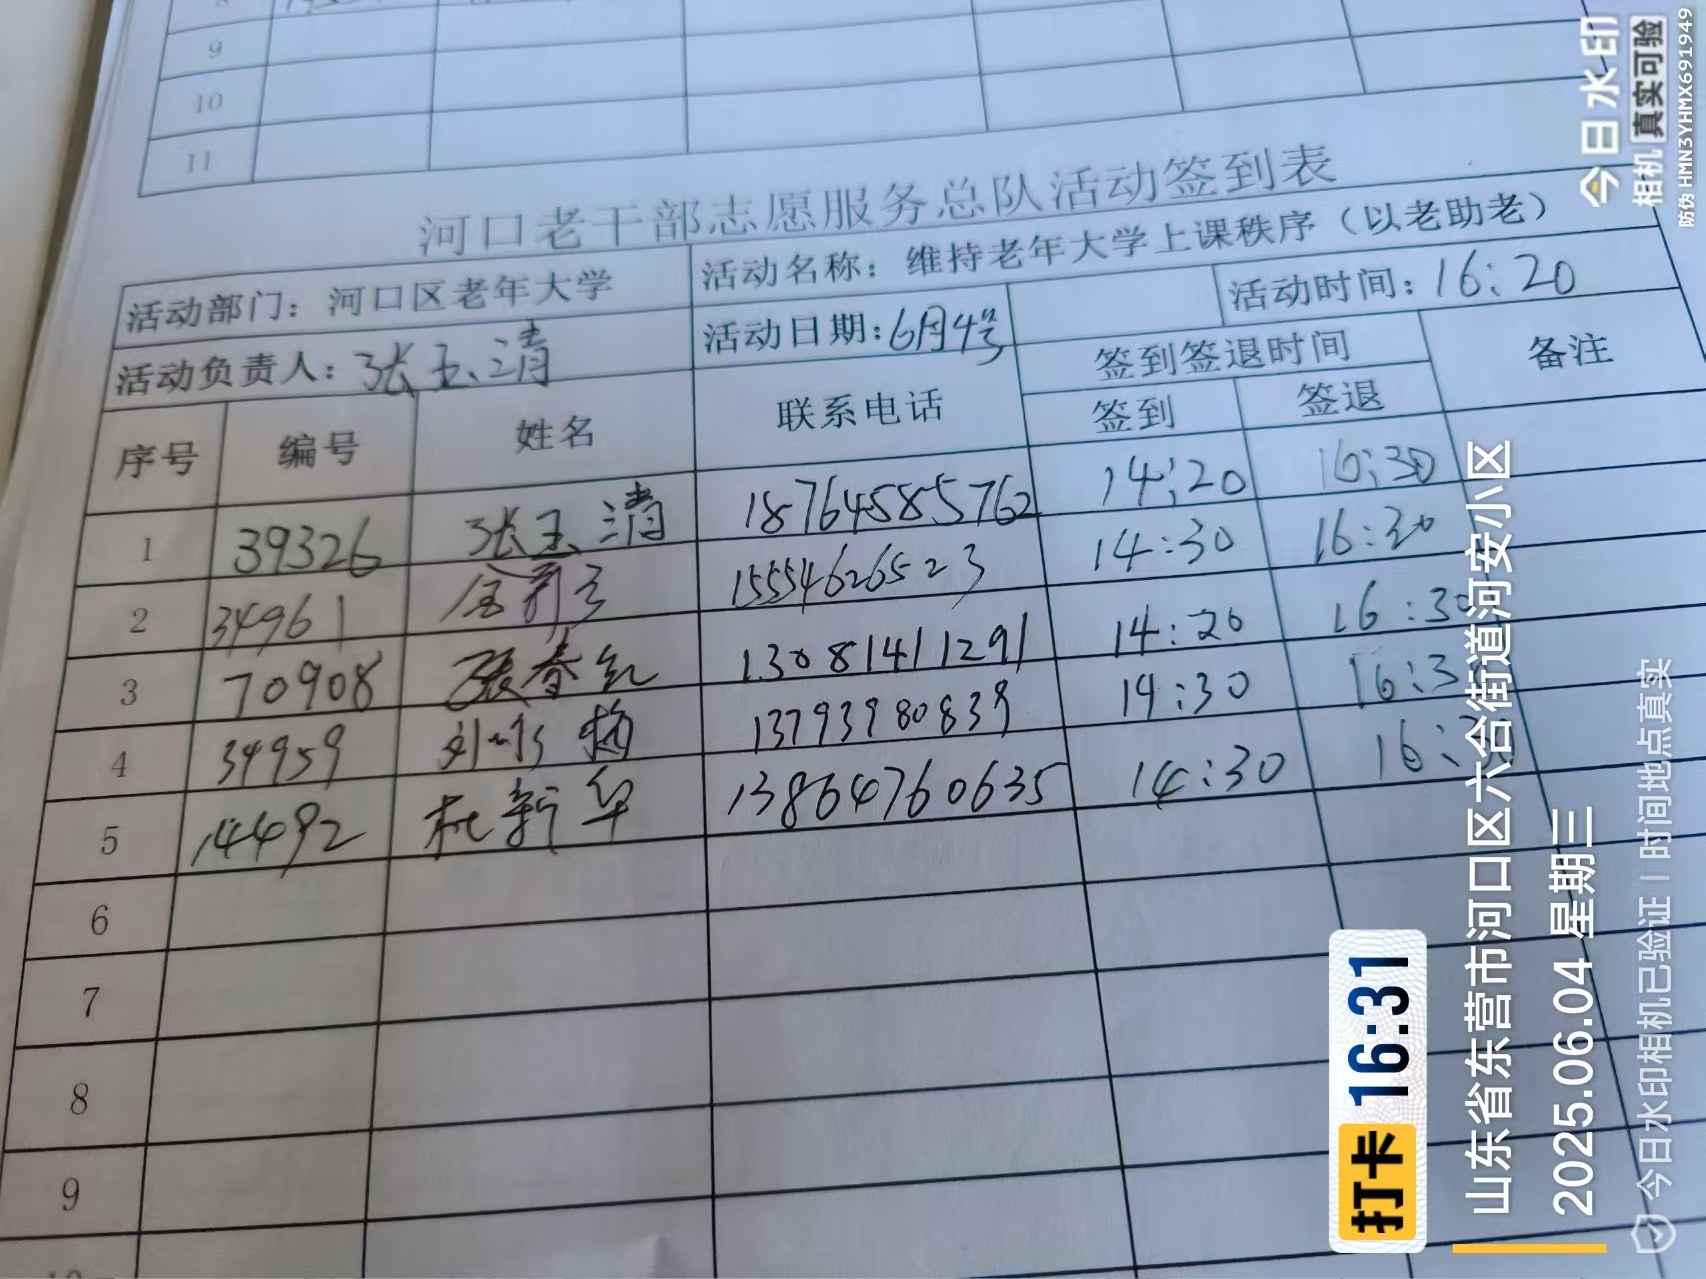 9
10
11
河口老干部志愿服务总队活动签到表
活动部门：河口区老年大学 活动名称：维持老年大学上课秩序（以老助老）
活动负责人：张玉清 活动日期：6月4号 活动时间：16:20
序号 编号 姓名 联系电话 签到签退时间 备注
签到 签退
1 39326 张玉清 18764585762 14:20 16:30
2 34961 15554626523 14:30 16:30
3 70908 張春红 13081411291 14:20 16:30
4 34959 13793980839 14:30 16:30
5 14492 杜新华 13864760635 14:30 16:30
6
7
8
9
今日水印
相机 真实可验
防伪 HMN3YHMX691949
打卡 16:31
山东省东营市河口区六合街道河安小区
2025.06.04 星期三
今日水印相机已验证 | 时间地点真实